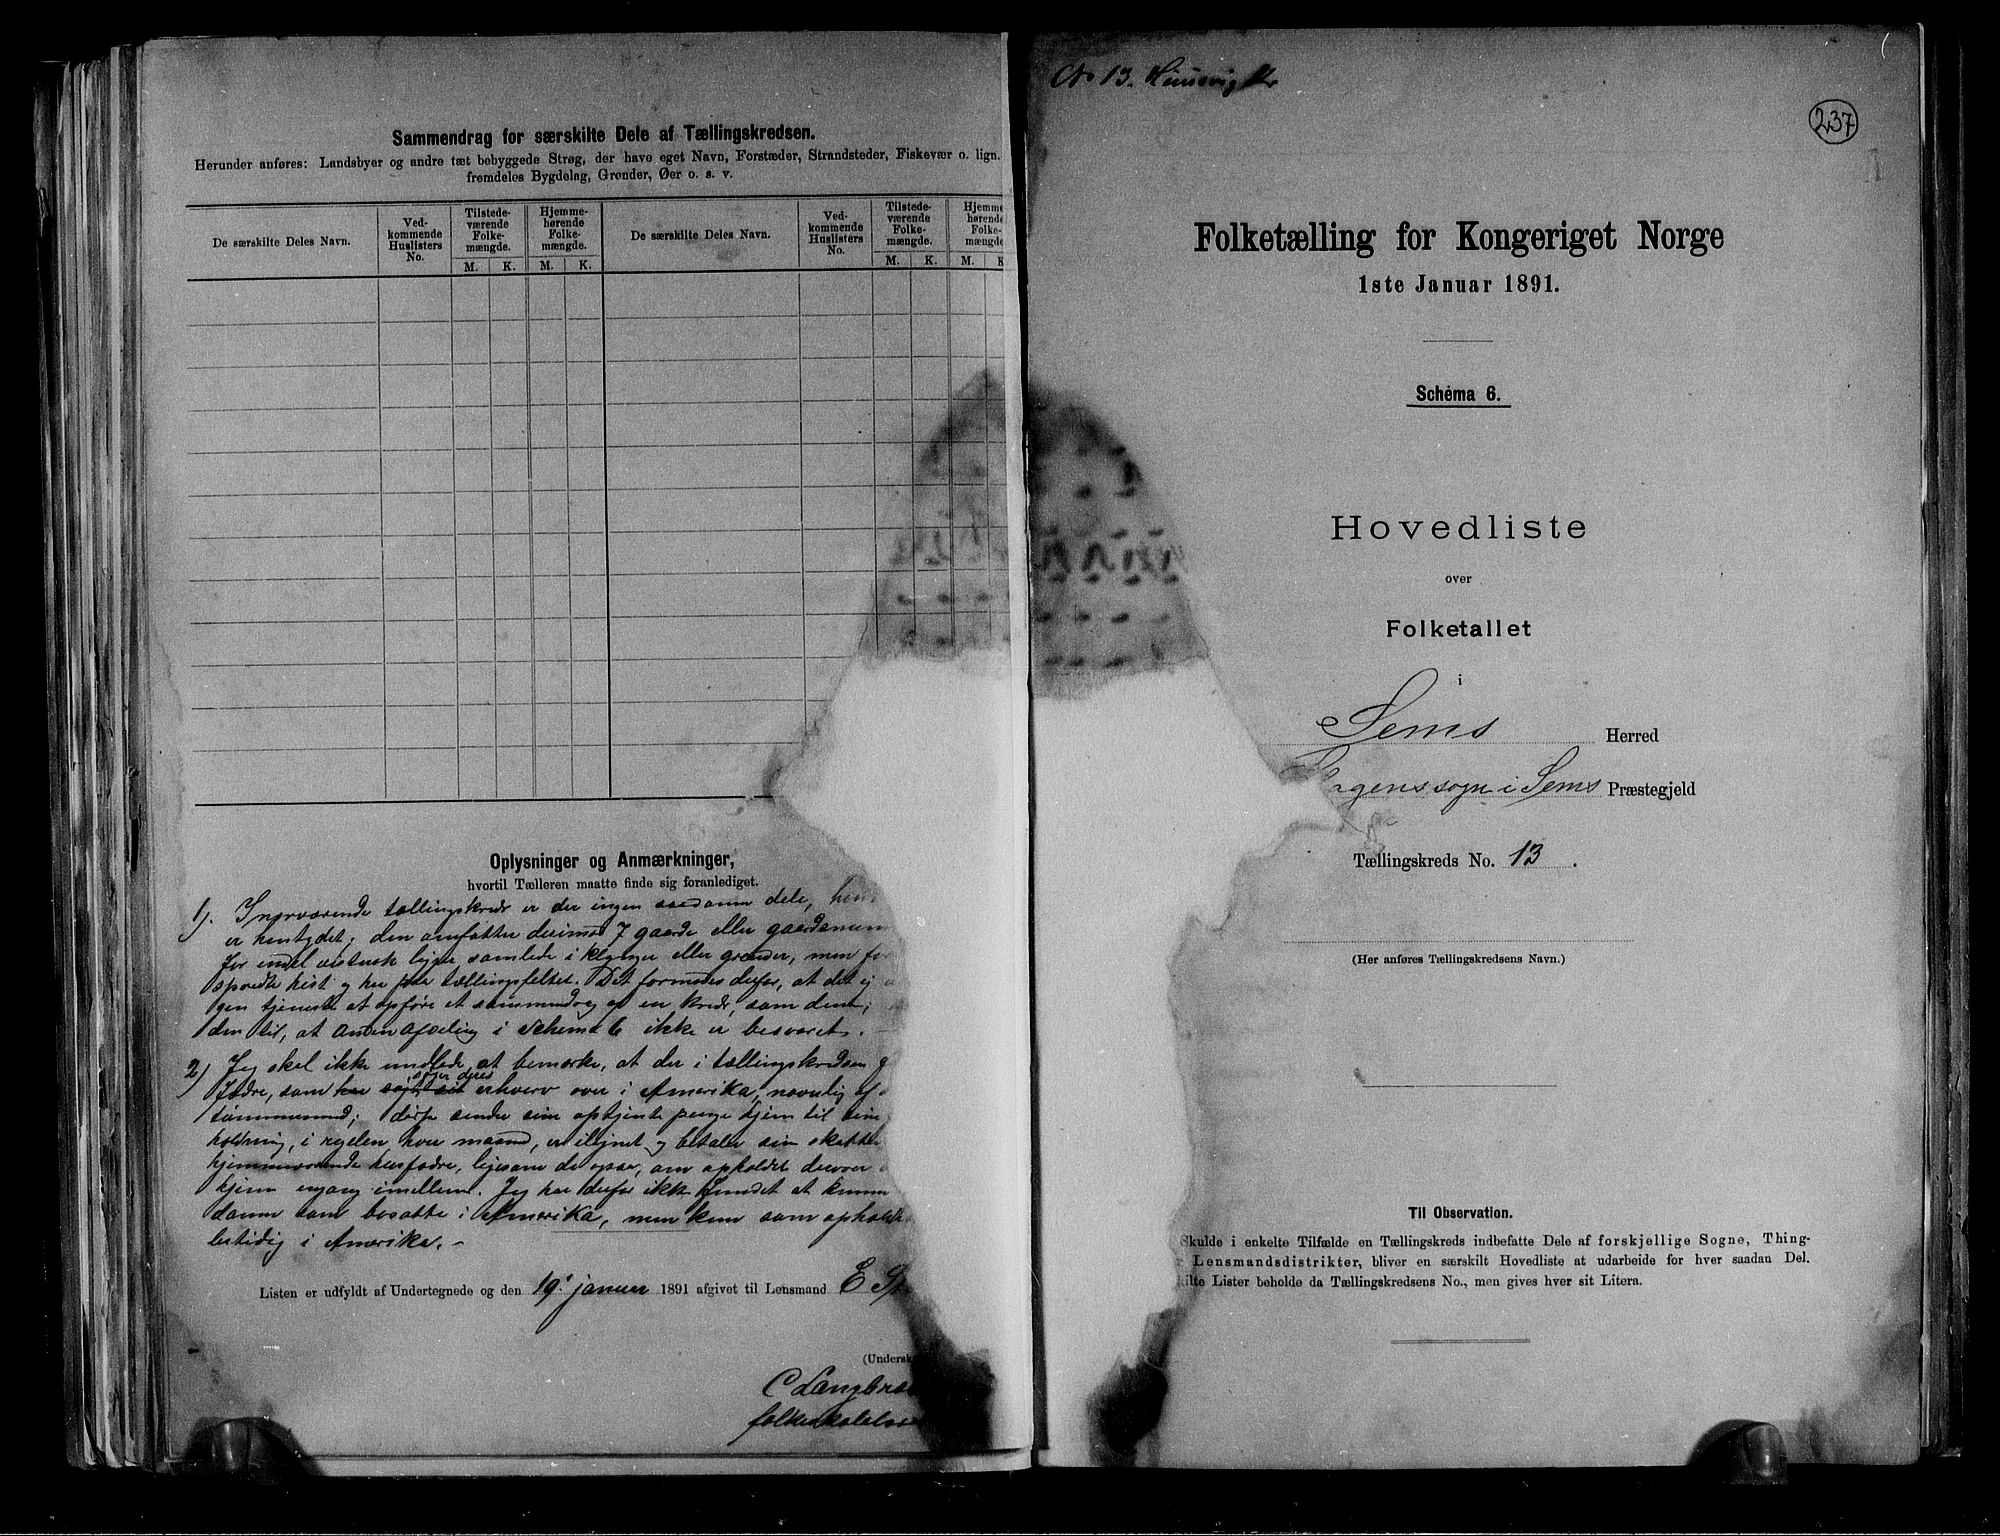 Sammendrag for særskilte Dele af Tællingskredsen.
Herunder anføres: Landsbyer og andre tæt bebyggede Strøg, der have eget Navn, Forstæder, Strandsteder, Fiskevær o. lign.
fremdeles Bygdelag, Grender, Øer o. s. v.
De særskilte Deles Navn. Ved-kommende Huslisters No. Tilstede-værende Folke-mængde. Hjemme-hørende Folke-mængde. De særskilte Deles Navn. Ved-kommende Huslisters No. Tilstede-værende Folke-mængde. Hjemme-hørende Folke-mængde
M. K. M. K. M. K. M. K
Oplysninger og Anmærkninger,
hvortil Tælleren maatte finde sig foranlediget.
1). I nærværende tællingskreds er der ingen saadanne dele,
er hentydet; den omfatter derimod 7 gaarde eller
for endel vistnok ligger samlede i klynger eller grender, men
spredte hist og her paa tællingsfeltet. Det formodes derfor, at det ej
gen tjeneste at opføre et sammendrag af en kreds, som denne,
den til, at anden afdeling i Schema 6 ikke er besvaret. -
2) Jeg skal ikke undlade at bemærke, at der i tællingskredsen
søger deres
fædre, som har søgt sit erhverv over i Amerika, navnlig
tømmermænd; disse sender sine optjente penge hjem til sin
holdning, i regelen hver maaned, er ilignet og betaler sin skatter
hjemmeværende husfædre, ligesom de ogsaa, om opholdet derover
hjem engang imellem. Jeg har derfor ikke fundet at kunne
danne som bosatte i Amerika, men kun som
lertidig i Amerika. -
Listen er udfyldt af Undertegnede og den 19' januar 1891 afgivet til Lensmand E
(Undersk
C Langbra
folkeskolelær
No 13.
237
Folketælling for Kongeriget Norge
1ste Januar 1891.
Schema 6.
Hovedliste
over
Folketallet
i
Sems Herred
agenssogn i Sems Præstegjeld
Tællingskreds No. 13.
(Her anføres Tællingskredsens Navn.)
Til Observation.
Skulde i enkelte Tilfælde en Tællingskreds indbefatte Dele af forskjellige Sogne, Thing-
Lensmandsdistrikter, bliver en særskilt Hovedliste at udarbeide for hver saadan Del.
ilte Lister beholde da Tællingskredsens No., men gives hver sit Litera.